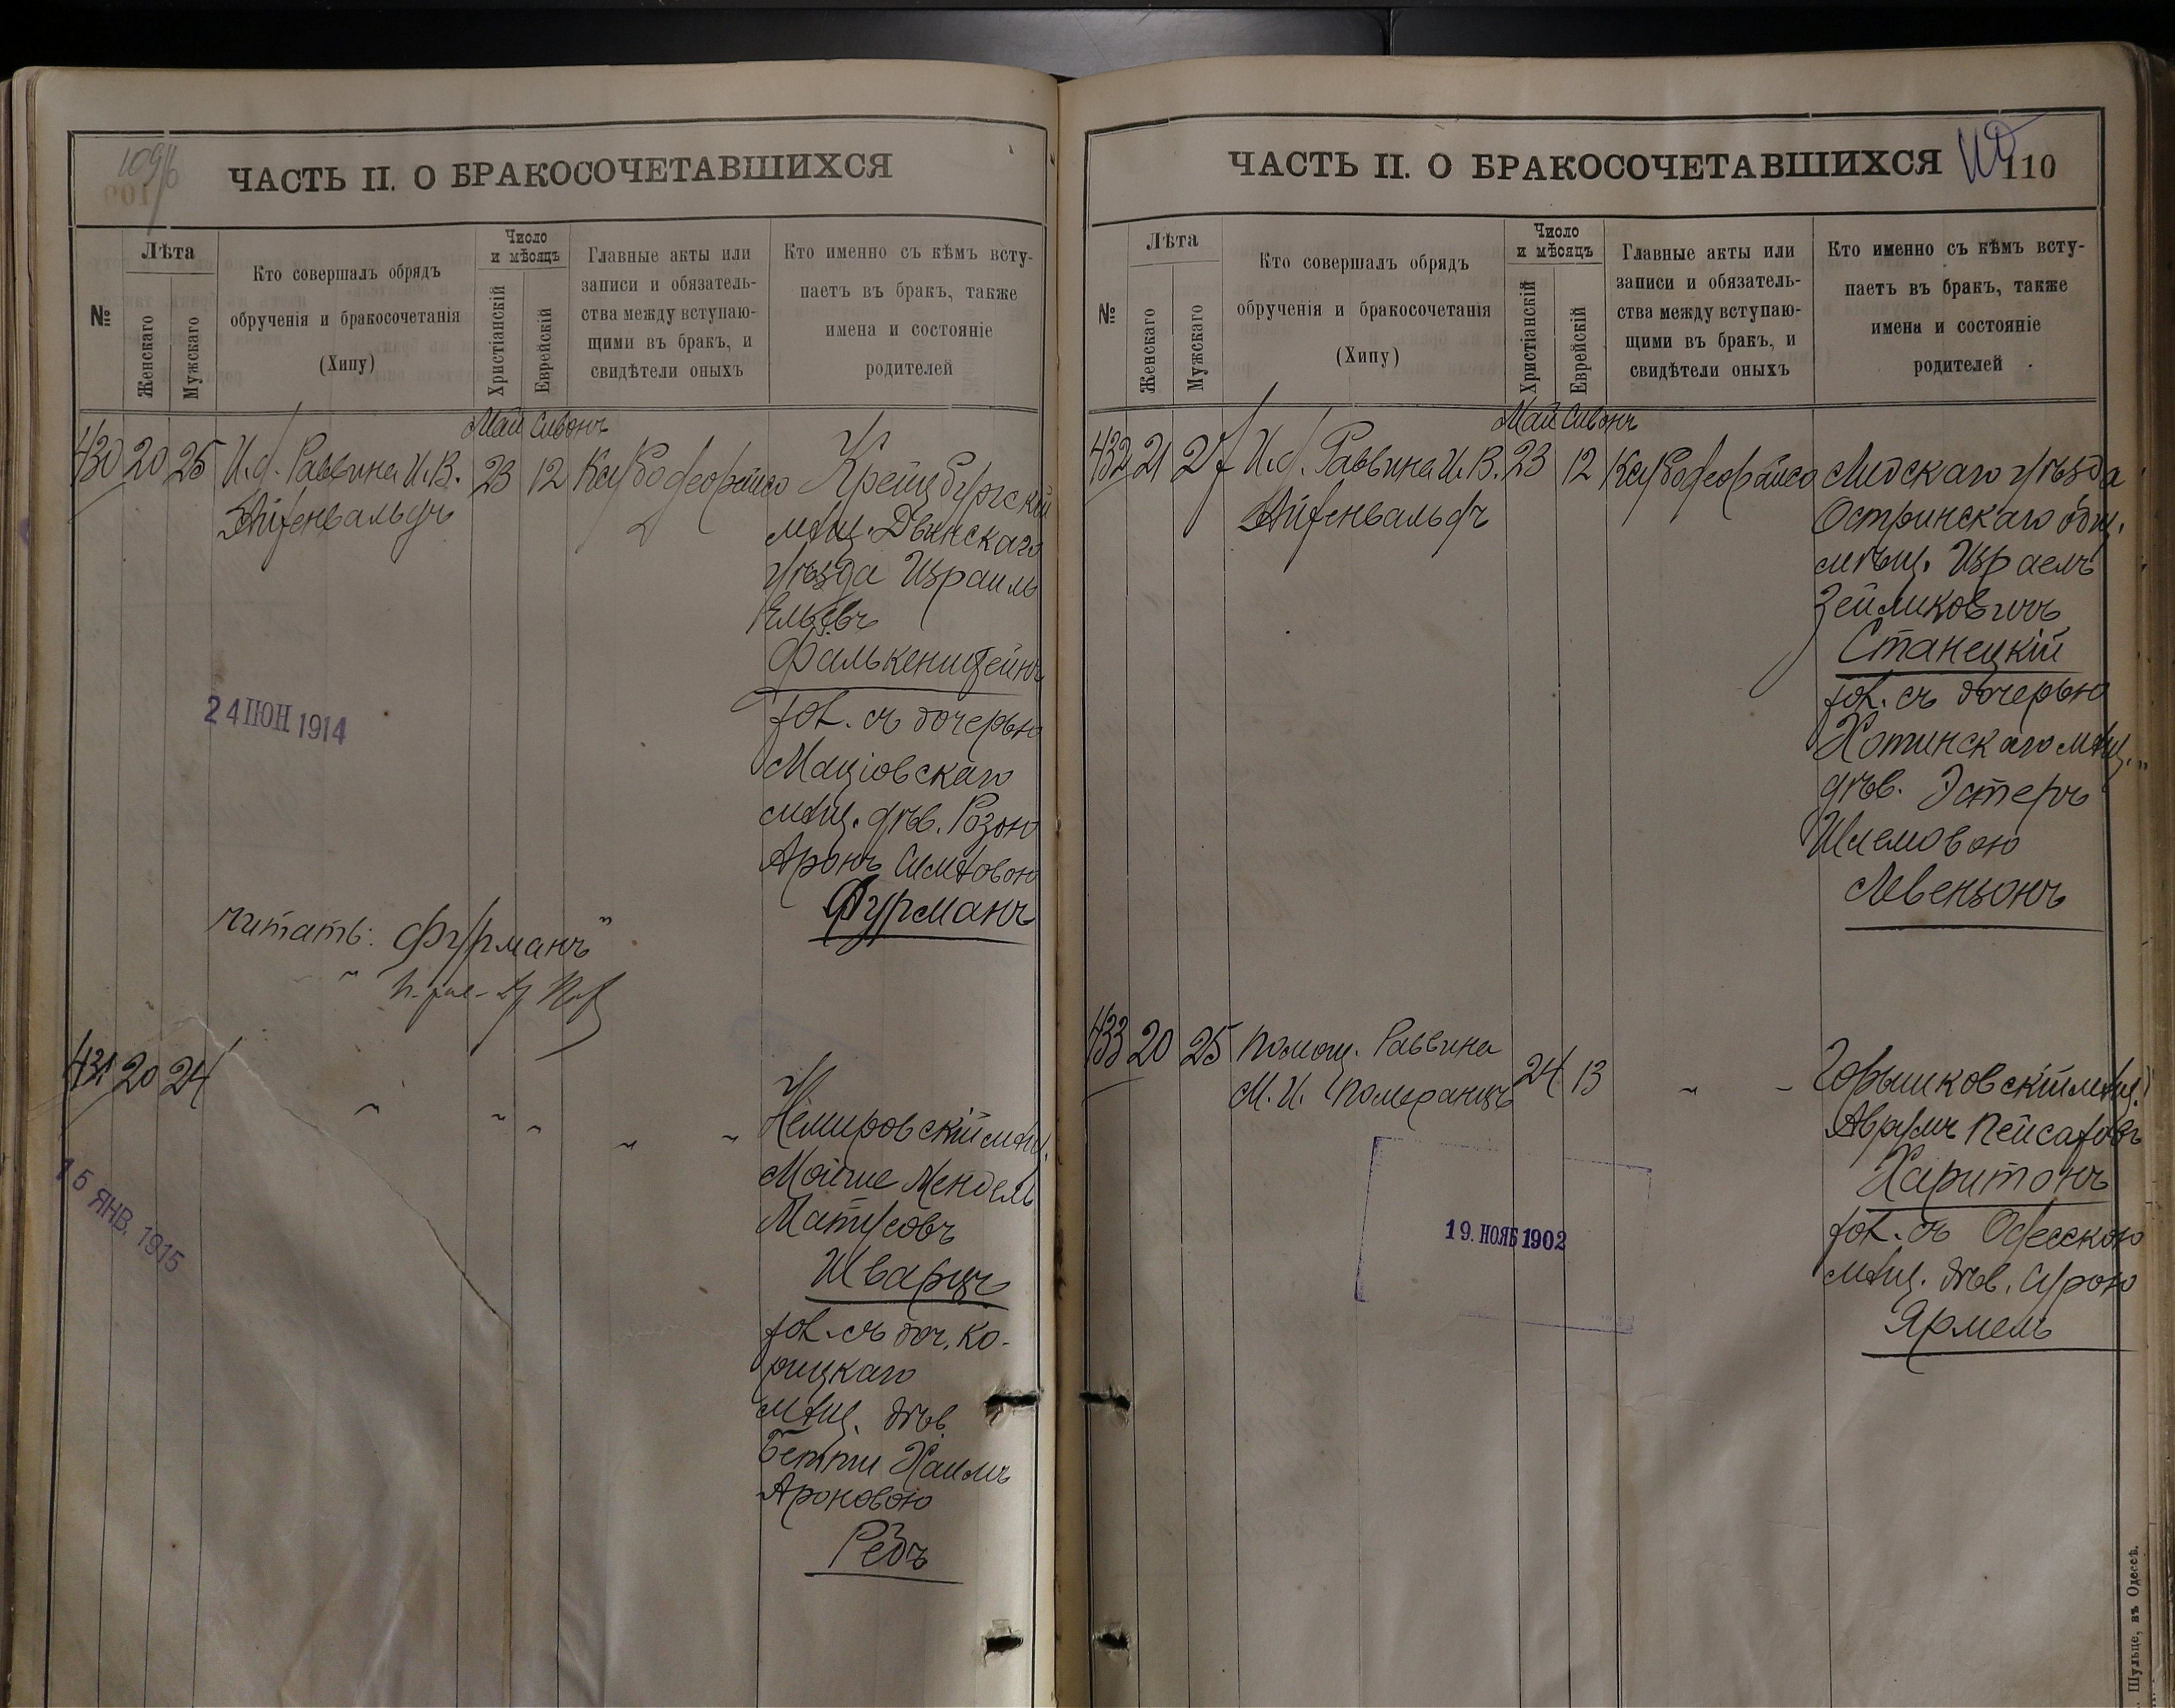 109/б
ЧАСТЬ II. О БРАКОСОЧЕТАВШИХСЯ
№
Лѣта
Женскаго
Мужскаго
Кто совершалъ обрядъ
обрученія и бракосочетанія
(Хипу)
Число
и мѣсяцъ
Христіанскій
Еврейскій
Главные акты или
записи и обязатель-
ства между вступаю-
щими въ бракъ, и
свидѣтели оныхъ
Кто именно съ кѣмъ всту-
паетъ въ бракъ, также
имена и состояніе
родителей
Май Сивонъ
430 20 25 И.д. Раввина И.В. 23 12
Айзенвальдъ
Крейцбургскій
мѣщ. Двинскаго
уѣзда Израиль
Фалькенштейнъ
хол. съ дочерью
Маціовскаго
мѣщ. дѣв. Розою
Аронъ
Фурманъ
24 ІЮН 1914
читать: „Фурманъ"
431 20 24 " " " " "
Немировскій мѣщ.
Мойше Мендель
Матусовъ
Шварцъ
хол. съ доч. Ко-
рицкаго
мѣщ. дѣв.
Бетти Хаимъ
Ароновою
Редъ
15 ЯНВ. 1915
ЧАСТЬ II. О БРАКОСОЧЕТАВШИХСЯ
110
№
Лѣта
Женскаго
Мужскаго
Кто совершалъ обрядъ
обрученія и бракосочетанія
(Хипу)
Число
и мѣсяцъ
Христіанскій
Еврейскій
Главные акты или
записи и обязатель-
ства между вступаю-
щими въ бракъ, и
свидѣтели оныхъ
Кто именно съ кѣмъ всту-
паетъ въ бракъ, также
имена и состояніе
родителей
Май Сивонъ
432 21 27 И.д. Раввина И.В. 23 12
Айзенвальдъ
Лидскаго уѣзда
Остринскаго общ.
мѣщ. Израель
Зейликовичъ
Станецкій
хол. съ дочерью
Хотинскаго мѣщ.
дѣв. Эстеръ
Шлемовою
Левензонъ
433 20 25 Помощ. Раввина 24 13 " "
М. И. Померанцъ
Горышковскій мѣщ.
Аврумъ Пейсаховъ
Харитонъ
хол. съ Одесскою
мѣщ. дѣв. Сурою
Ярмель
19. НОЯБ 1902
Шульце, въ Одессѣ.